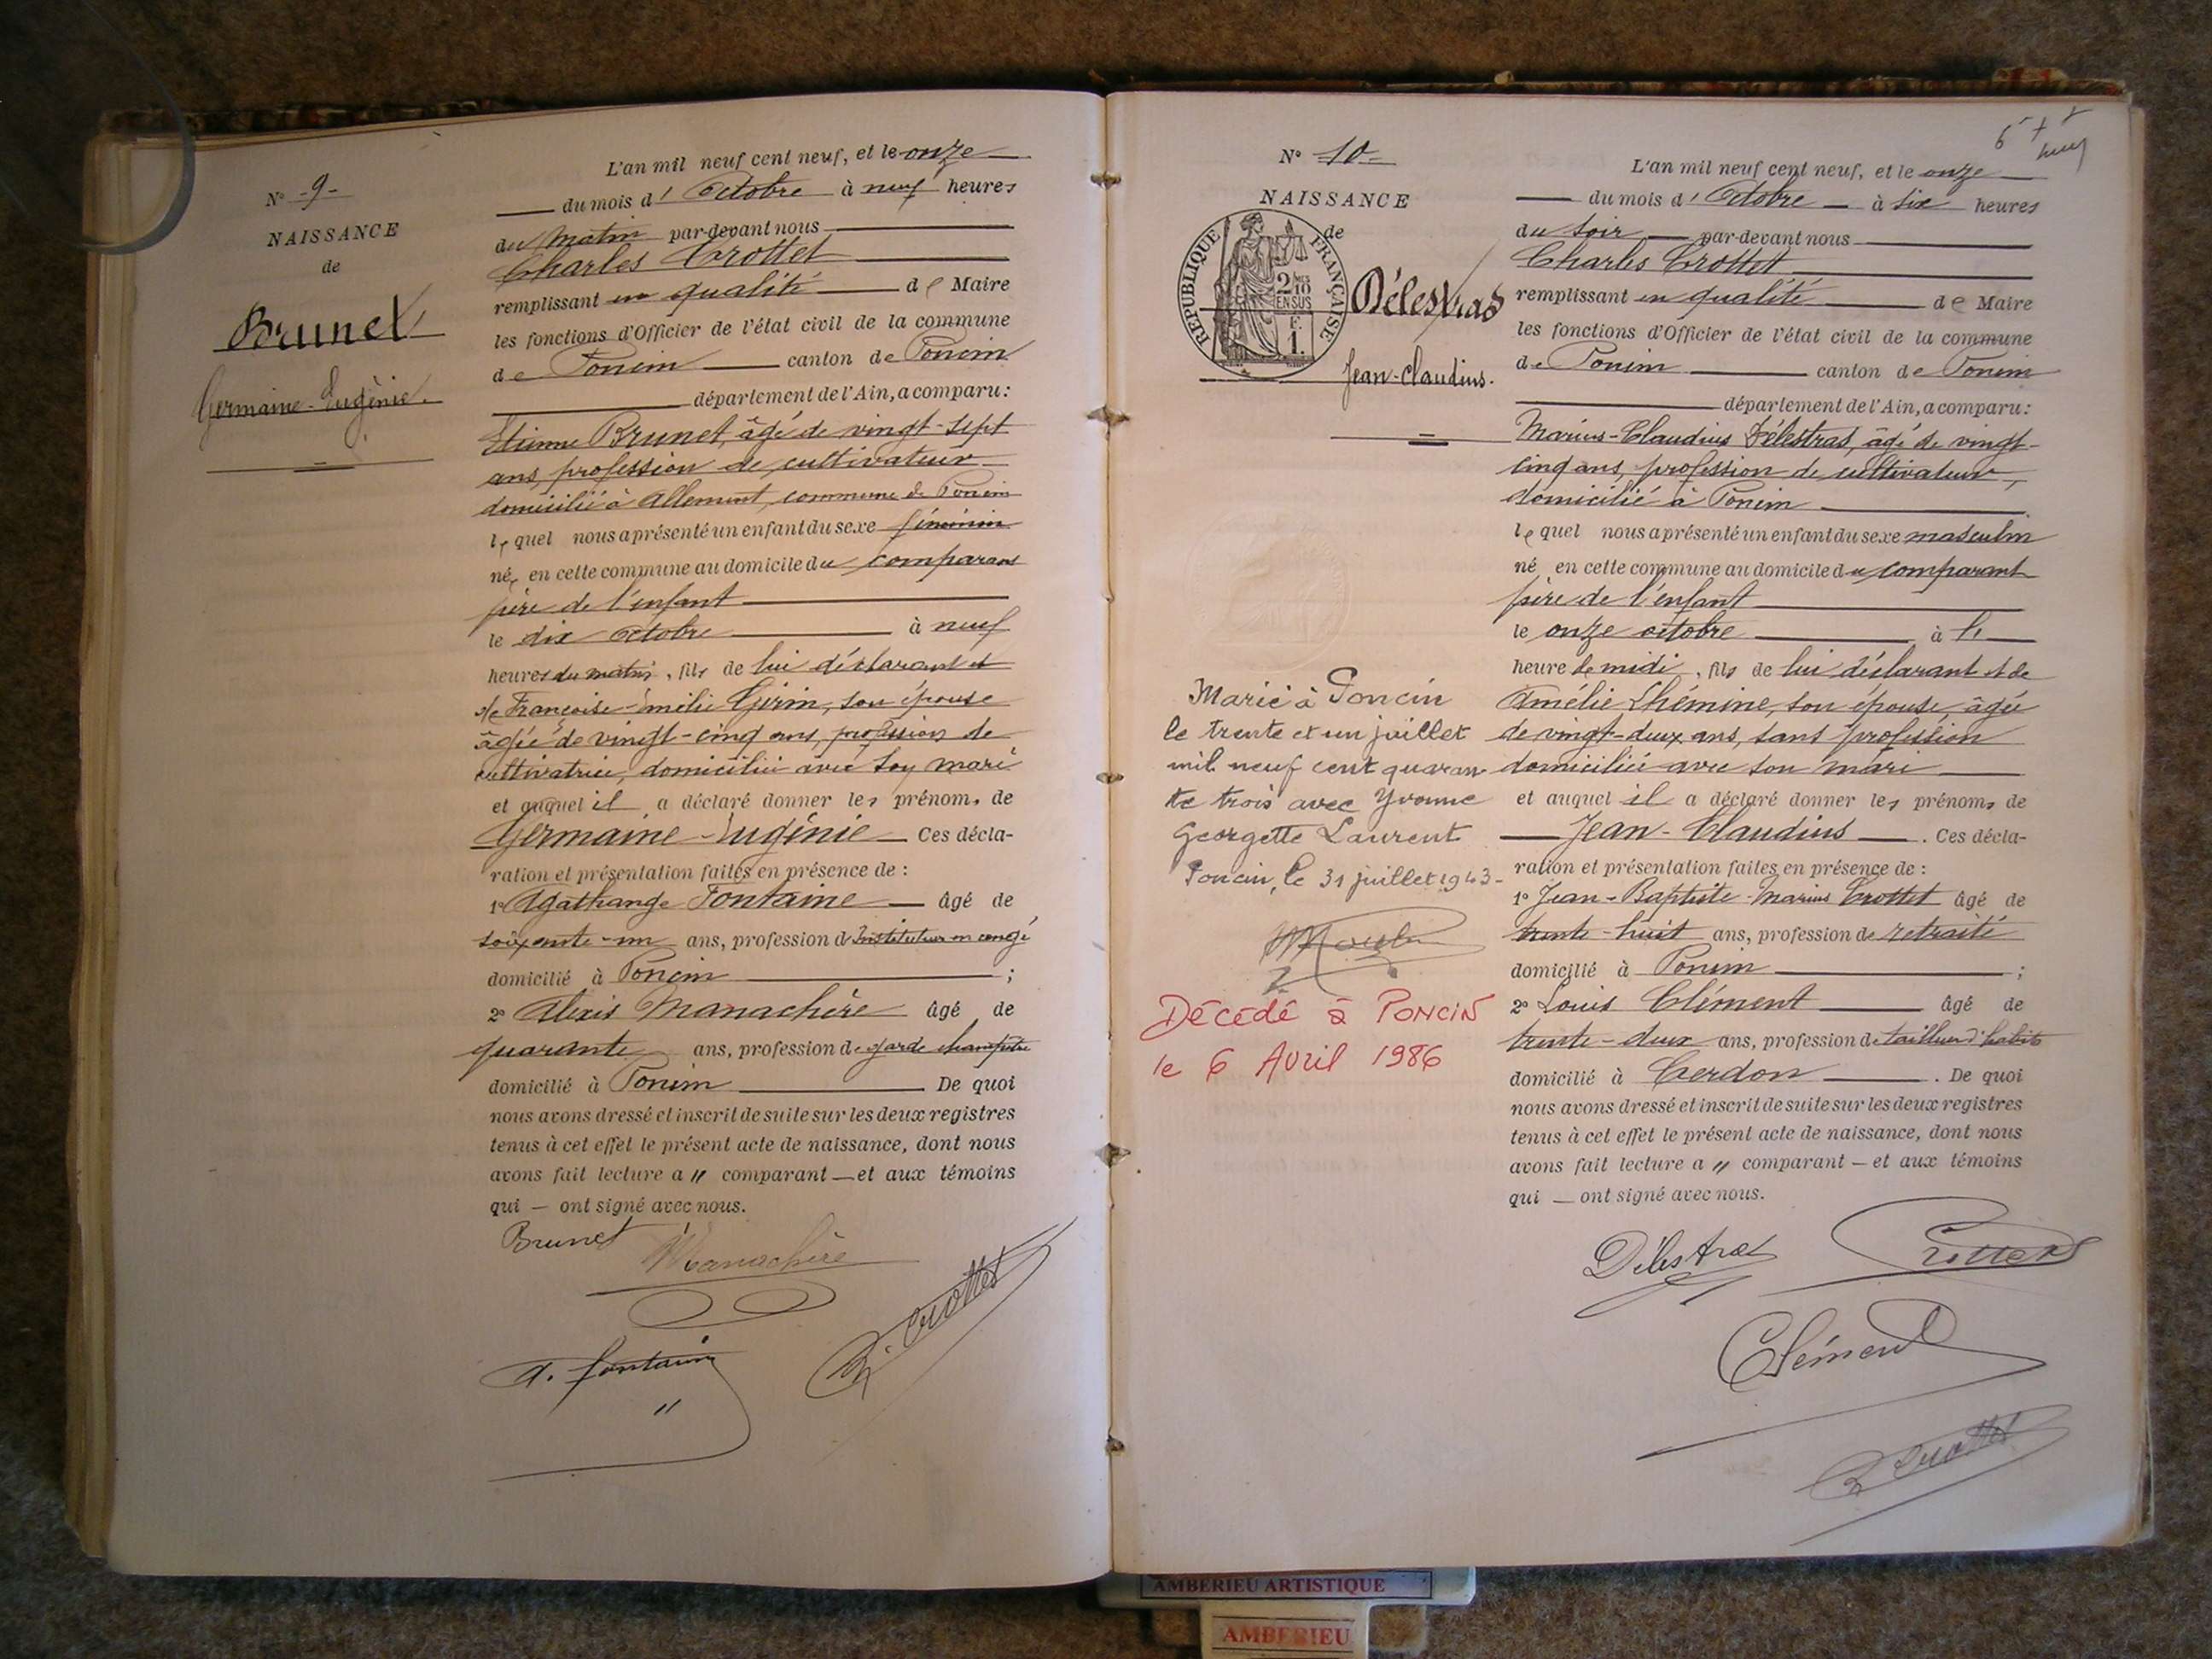 N° -9-
NAISSANCE
de
Brunet
Germaine-Eugénie.
L'an mil neuf cent neuf, et le onze
du mois d'Octobre à neuf heures
du Matin par-devant nous
Charles Crottet
remplissant en qualité de Maire
les fonctions d'Officier de l'état civil de la commune
de Poncin canton de Poncin
département de l'Ain, a comparu:
Etienne Brunet, âgé de vingt-sept
ans, profession de cultivateur
domicilié à Allement, commune de Poncin
lequel nous a présenté un enfant du sexe féminin
née en cette commune au domicile du comparant
père de l'enfant
le dix octobre à neuf
heures du matin, fils de lui déclarant et
de Françoise-Emélie Girin, son épouse
âgée de vingt-cinq ans, profession de
cultivatrice, domiciliée avec son mari
et auquel il a déclaré donner les prénoms de
Germaine-Eugénie Ces décla-
ration et présentation faites en présence de :
1° Agathange Fontaine âgé de
soixante-un ans, profession d'Instituteur en congé
domicilié à Poncin ;
2° Alexis Manachère âgé de
quarante ans, profession de garde champêtre
domicilié à Poncin De quoi
nous avons dressé et inscrit de suite sur les deux registres
tenus à cet effet le présent acte de naissance, dont nous
avons fait lecture a " comparant — et aux témoins
qui — ont signé avec nous.
Brunet
Manachère
A. Fontaine
Ch. Crottet
N° -10-
NAISSANCE
de
REPUBLIQUE FRANÇAISE
2/10 EN SUS
F. 1.
Délestras
Jean-Claudius.
Marié à Poncin
le trente et un juillet
mil neuf cent quaran
te trois avec Yvonne
Georgette Laurent
Poncin, le 31 juillet 1943-
Décédé à PONCIN
le 6 Avril 1986
L'an mil neuf cent neuf, et le onze
du mois d'Octobre à six heures
du soir par-devant nous
Charles Crottet
remplissant en qualité de Maire
les fonctions d'Officier de l'état civil de la commune
de Poncin canton de Poncin
département de l'Ain, a comparu:
Marius-Claudius Délestras, âgé de vingt-
cinq ans, profession de cultivateur,
domicilié à Poncin
lequel nous a présenté un enfant du sexe masculin
né en cette commune au domicile du comparant
père de l'enfant
le onze octobre à 1.
heure de midi, fils de lui déclarant et de
Amélie Lhémine, son épouse âgée
de vingt-deux ans, sans profession
domiciliée avec son mari
et auquel il a déclaré donner les prénoms de
Jean-Claudius. Ces décla-
ration et présentation faites en présence de :
1° Jean-Baptiste-Marius Crottet âgé de
trente-huit ans, profession de retraité
domicilié à Poncin ;
2° Louis Clément âgé de
trente-deux ans, profession de tailleur d'habits
domicilié à Cerdon. De quoi
nous avons dressé et inscrit de suite sur les deux registres
tenus à cet effet le présent acte de naissance, dont nous
avons fait lecture a " comparant — et aux témoins
qui — ont signé avec nous.
Délestras
Crottet
Clément
Crottet
AMBERIEU ARTISTIQUE
AMBERIEU